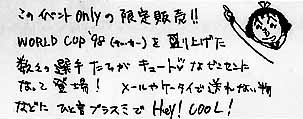 このイベントonlyの限定販売!!
WORLD CUP '98 (サッカー) を盛り上げた
数々の選手たちがキュートなぜにせんに
なって登場! メールやケータイで送れない物
などに ひと言プラスミで Hey! COOL!